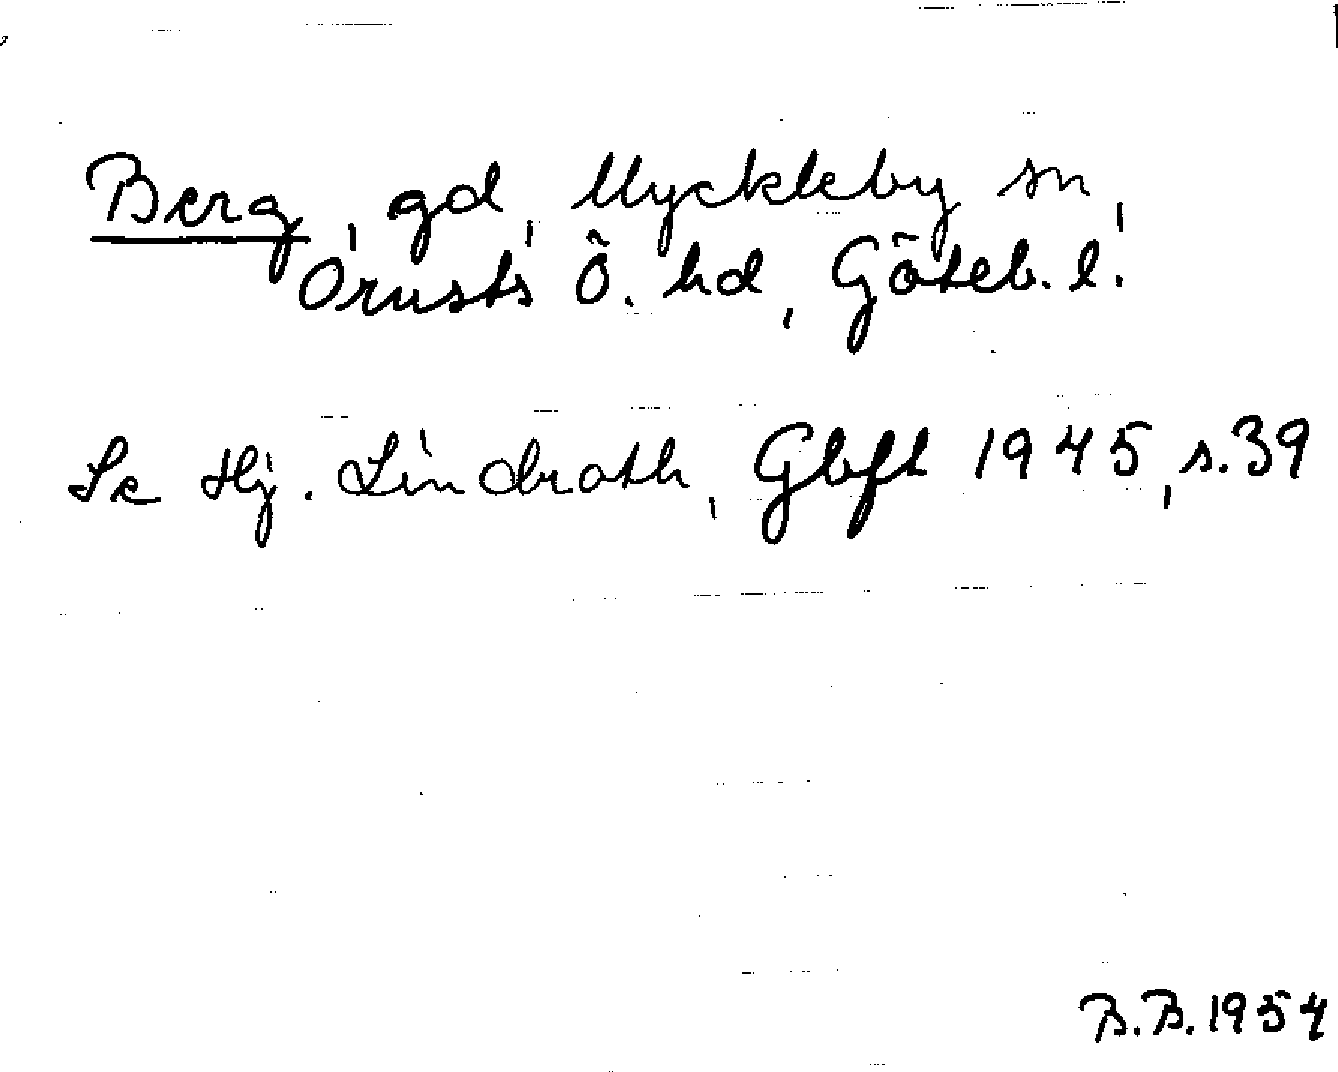 Berg, gd, Myckleby sn,
Orusts Ö. hd, Göteb. l.
Se Hj. Lindroth, Gbft 1945, s. 39
B.B. 1954